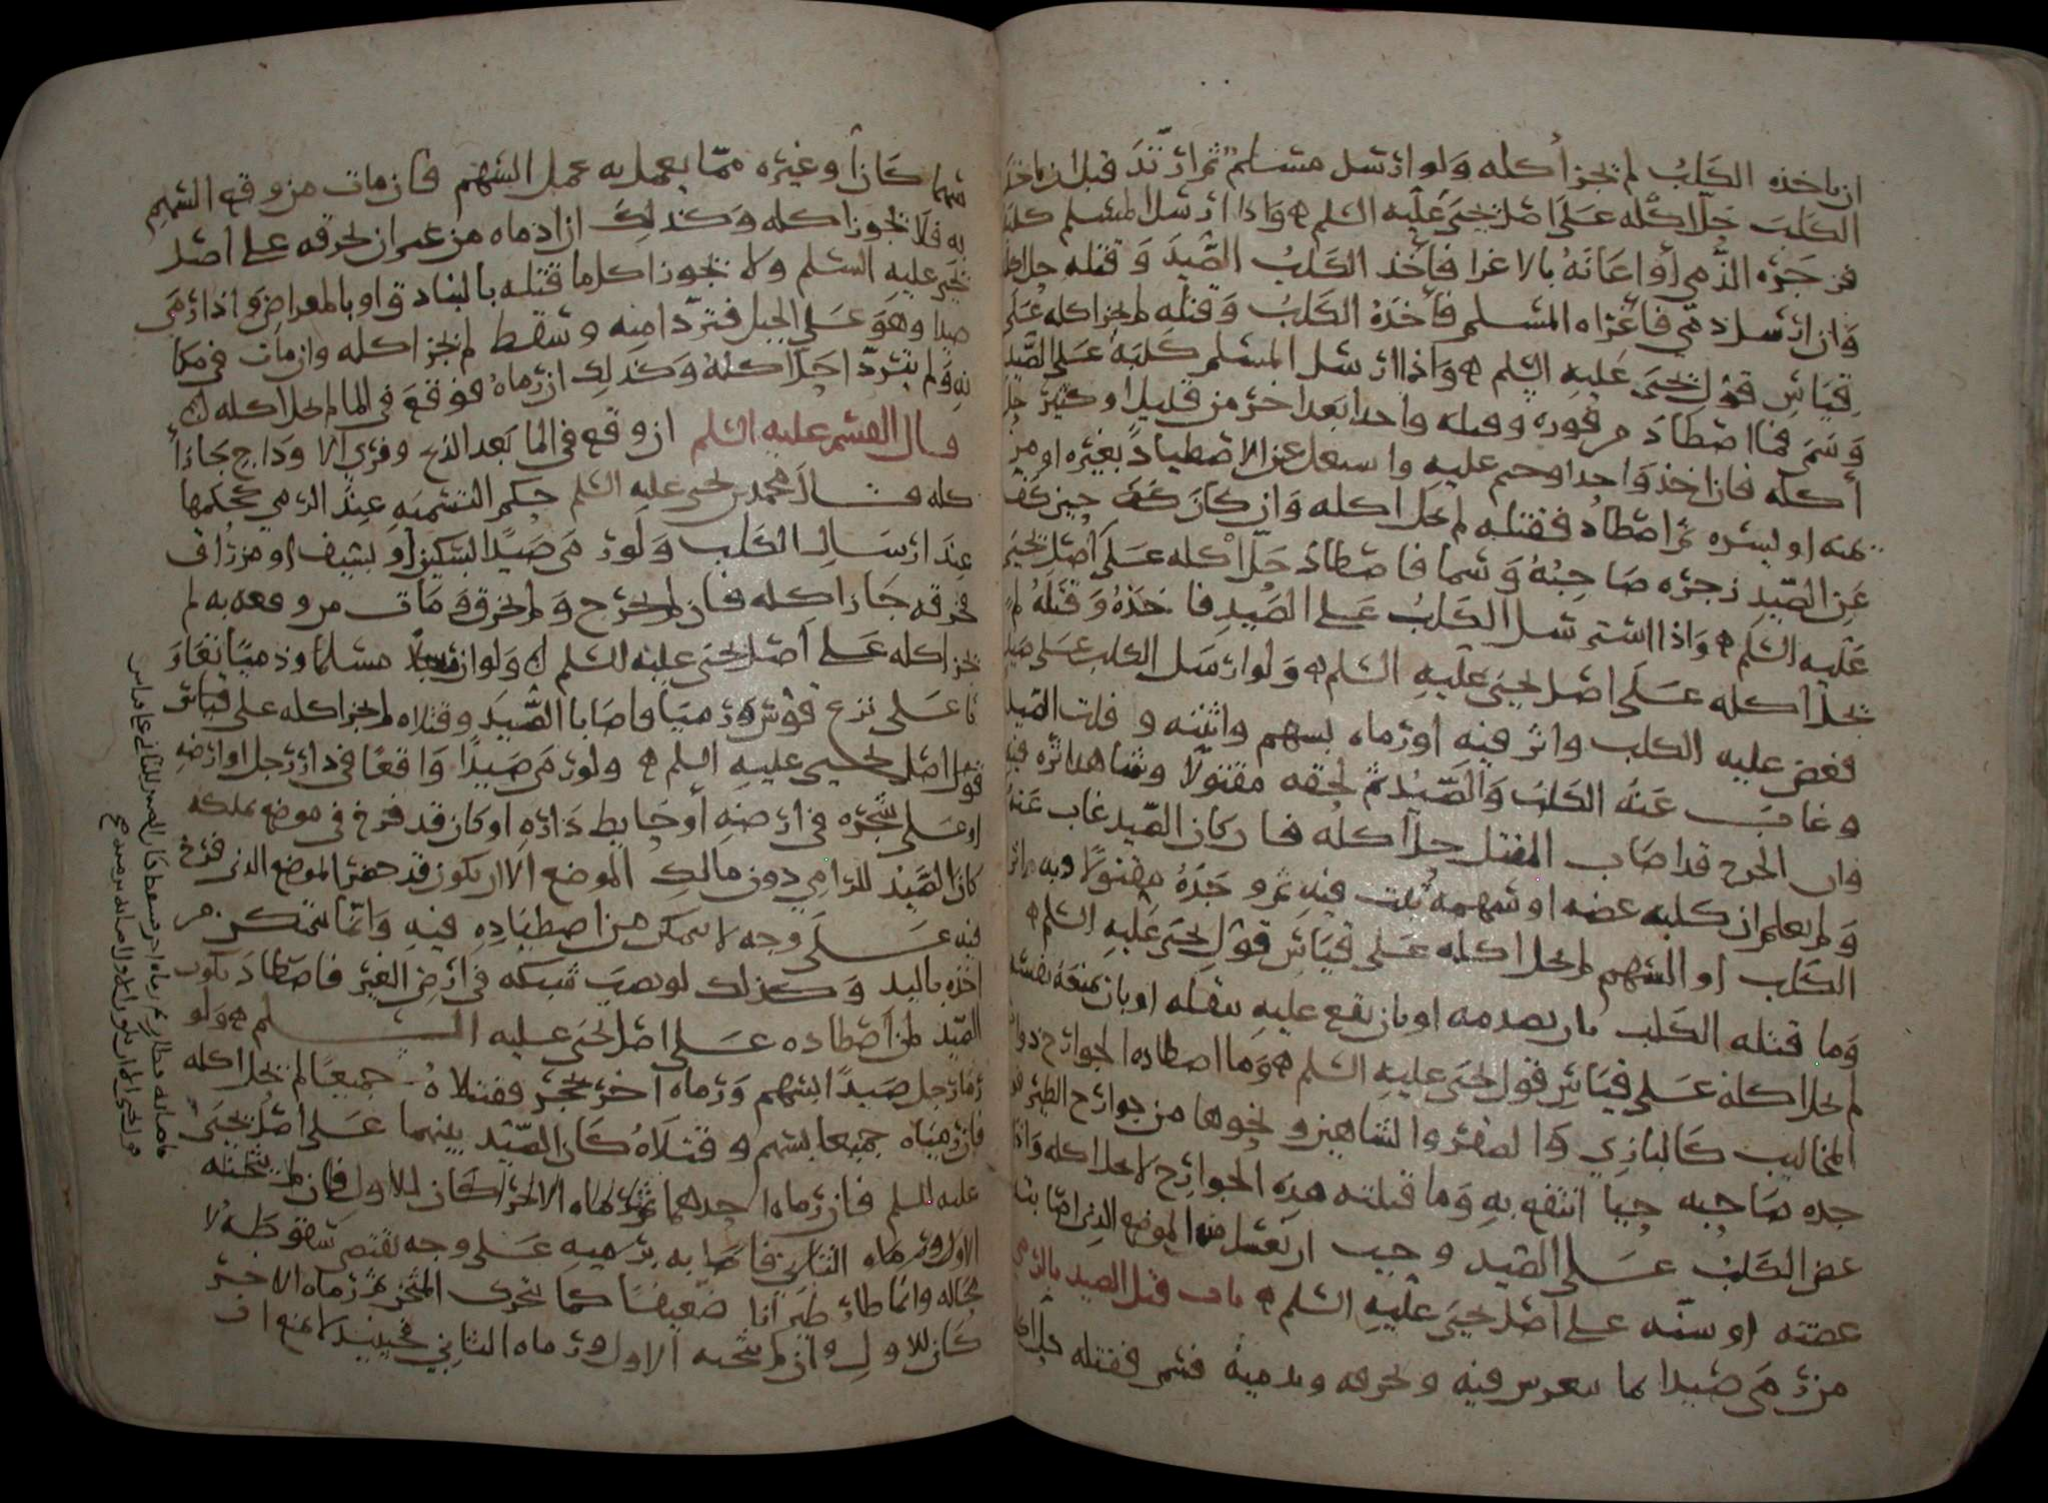 ان ياخذه الكلب لم يجز أكله ولو ارسل مسلم ثم ارتد قبل ان ياخذ
الكلب حل اكله على اصل يحيى عليه السلم واذا ارسل المسلم كلبا
فزجره الذمي أو اعانه بالاغرا فأخذ الكلب الصيد وقتله حل اكله
وان ارسل ذمي فأغراه المسلم فأخذه الكلب وقتله لم يجز اكله على
قياس قول يحيى عليه السلم واذا ارسل المسلم كلبه على الصيد
وسمى فما اصطاد من فوره وقتله واحدا بعد اخر من قليل او كثير حل
أكله فان اخذ واحدا وجثم عليه واشتغل عن الاصطياد بغيره او من
ثم اصطاد فقتله لم يحل اكله وان كان كف حين كف
عن الصيد زجره صاحبه وسما فاصطاد حل أكله على أصل يحيى
عليه السلم واذا استرسل الكلب على الصيد فاخذه وقتله لم
يحل اكله على اصل يحيى عليه السلم ولو ارسل الكلب على صيد
فعض عليه الكلب واثر فيه او رماه بسهم واثبته وفلت الصيد
وغاب عنه الكلب والصيد ثم لحقه مقتولا وشاهد اثره فيه
وان الجرح قد اصاب المقتل حل أكله فان كان الصيد غاب عنه
ولم يعلم ان كلبه عضه او سهمه ثبت فيه ثم وجده مقتولا وبه اثر
الكلب او السهم لم يحل اكله على قياس قول يحيى عليه السلم
وما قتله الكلب بان يصدمه او بان يقع عليه فقتله او بان
لم يحل اكله على قياس قول يحيى عليه السلم وما اصطاده الجوارح ذوات
المخاليب كالبازي والصقر والشاهين ونحوها من جوارح الطير
جده صاحبه حيا انتفع به وما قتلته هذه الجوارح لا يحل اكله واذا
عض الكلب على الصيد وجب ان يغسل منه الموضع الذي اصابته
عضته او سنه على اصل يحيى عليه السلم باب قتل الصيد بالرمي
من رمى صيدا بما يخرقه ويدميه فسمى فقتله حل اكله
سهما كان أو غيره مما يعمل به عمل السهم فان مات من وقع السهم
به فلا يجوز اكله وكذلك ان ادماه من غير ان يخرقه على اصل
يحيى عليه السلم ولا يجوز اكل ما قتله بالبنادق او بالمعراض واذا رمى
صيدا وهو على الجبل فتردا منه وسقط لم يجز اكله وان مات في مكا
نه ولم يتردا حل اكله وكذلك ان رماه فوقع في الما لم يحل اكله
قال القسم عليه السلم ان وقع في الما بعد الذبح وفري الاوداج جاز أ
كله قال محمد بن يحيى عليه السلم حكم التسمية عند الرمي كحكمها
عند ارسال الكلب ولو رمى صيدا بسكين أو بسيف او مزراق
فخرقه جاز اكله فان لم يجرح ولم يخرق ومات من وقعه به لم
يجز اكله على أصل يحيى عليه السلم ولو ان مسلما وذميا تعاو
نا على نزع قوس ورميا فاصابا الصيد وقتلاه لم يجز اكله على قياس
قول اصل يحيى عليه السلم ولو رمى صيدا واقعا في دار رجل او ارضه
او على شجره في ارضه أو حايط داره او كان قد فرخ في موضع يملكه
كان الصيد للرامي دون مالك الموضع الا ان يكون قد حفر الموضع الذي فرخ
فيه على وجه لا يتمكن من اصطياده فيه وانما يتمكن من
اخذه باليد وكذلك لو نصب شبكه في ارض الغير فاصطاد يكون
الصيد لمن أصطاده على اصل يحيى عليه السلم ولو
رما رجل صيدا بسهم ورماه اخر بحجر فقتلاه جميعا لم يحل اكله
فان رمياه جميعا بسهم وقتلاه كان الصيد بينهما على أصل يحيى
عليه السلم فان رماه احدهما ثم رماه الاخر كان للاول فان لم يثخنه
الاول ورماه الثاني فاصابه برميه على وجه يقتضي سقوطه لا
محاله وانما طار طيرانا ضعيفا كما يتحرك المتحير ثم رماه الاخر
كان للاول وان لم يثخنه الاول ورماه الثاني فحينئذ لا يمنع ان